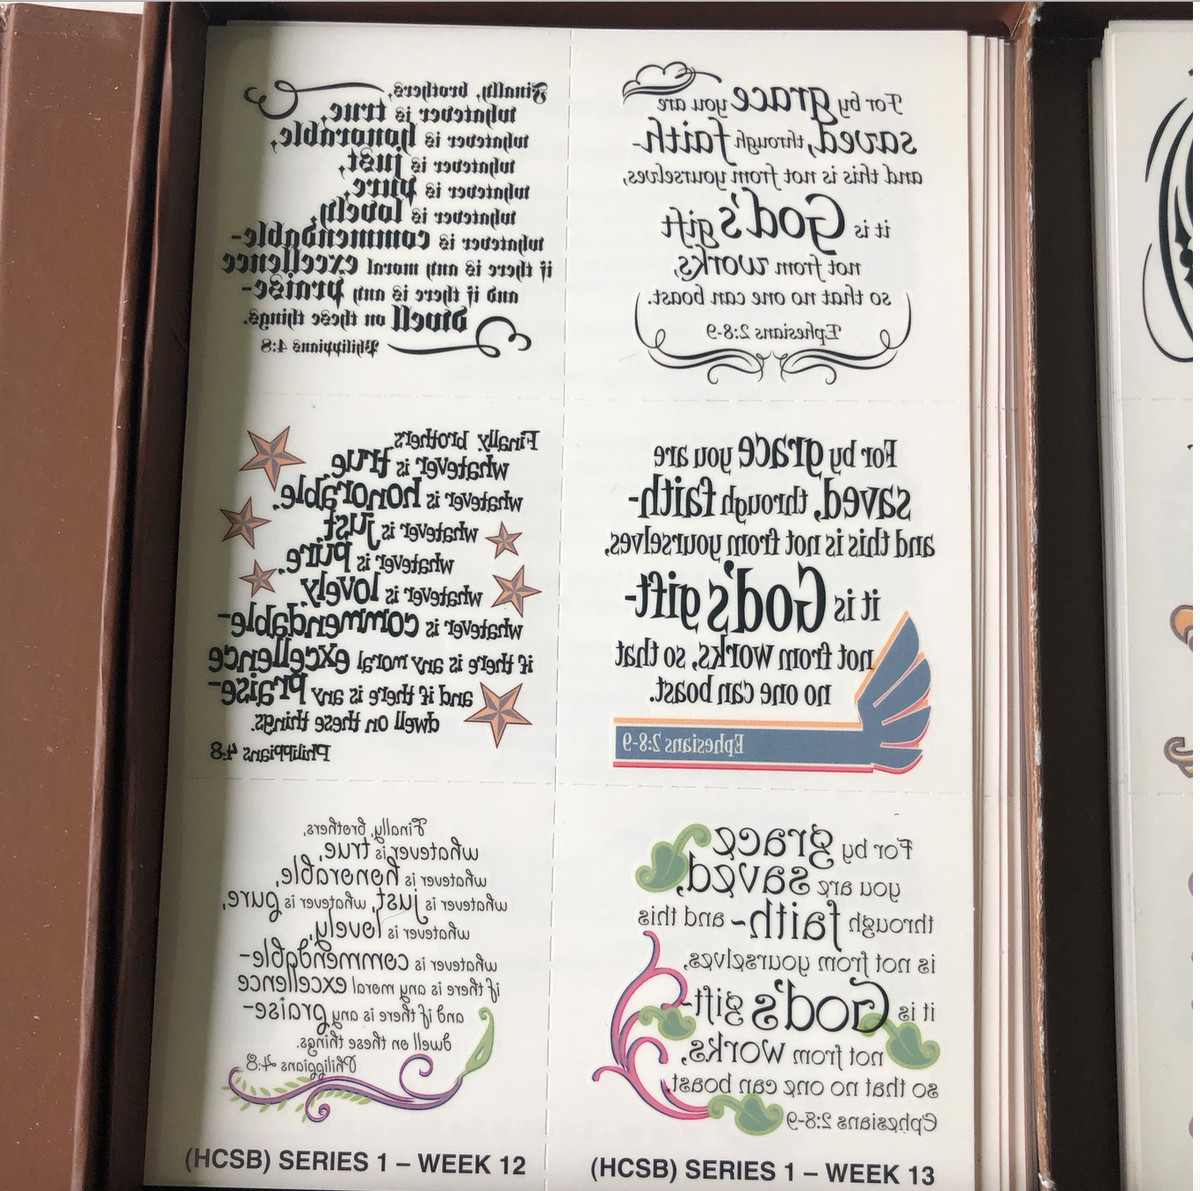 Finally, brothers,
whatever is true,
whatever is honorable,
whatever is just,
whatever is pure,
whatever is lovely,
whatever is commendable-
if there is any moral excellence
and if there is any praise-
dwell on these things.
Philippians 4:8
For by grace you are
saved, through faith-
and this is not from yourselves,
it is God's gift
not from works,
so that no one can boast.
Ephesians 2:8-9
Finally brothers,
whatever is true,
whatever is honorable,
whatever is just,
whatever is pure,
whatever is lovely,
whatever is commendable-
if there is any moral excellence
and if there is any praise-
dwell on these things.
Philippians 4:8
For by grace you are
saved, through faith-
and this is not from yourselves,
it is God's gift-
not from works, so that
no one can boast.
Ephesians 2:8-9
Finally, brothers,
whatever is true,
whatever is honorable,
whatever is just, whatever is pure,
whatever is lovely,
whatever is commendable-
if there is any moral excellence
and if there is any praise-
dwell on these things.
Philippians 4:8
For by grace
you are saved,
through faith-and this
is not from yourselves,
it is God's gift-
not from works,
so that no one can boast.
Ephesians 2:8-9
(HCSB) SERIES 1 – WEEK 12
(HCSB) SERIES 1 – WEEK 13